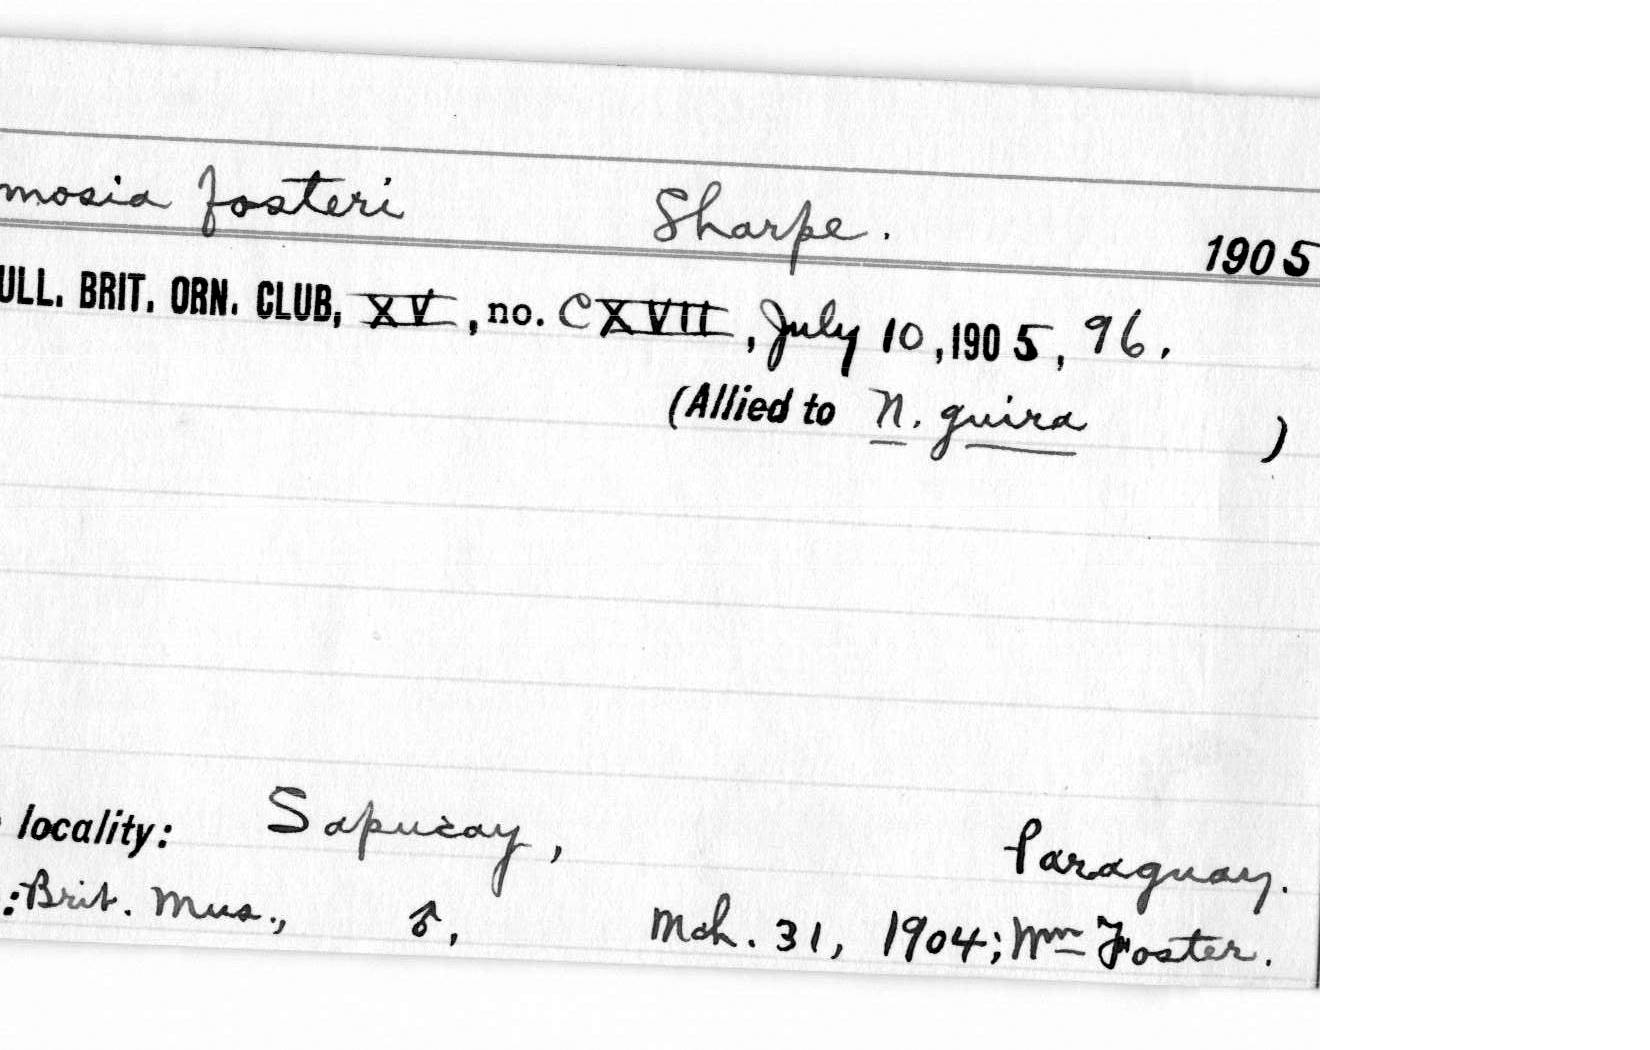 mosia fosteri Sharpe. 1905
ULL. BRIT. ORN. CLUB, XV, no. CXVII, July 10, 1905, 96.
(Allied to N. guira )
locality: Sapucay, Paraguay.
: Brit. Mus., ♂, Mch. 31, 1904; Wm Foster.